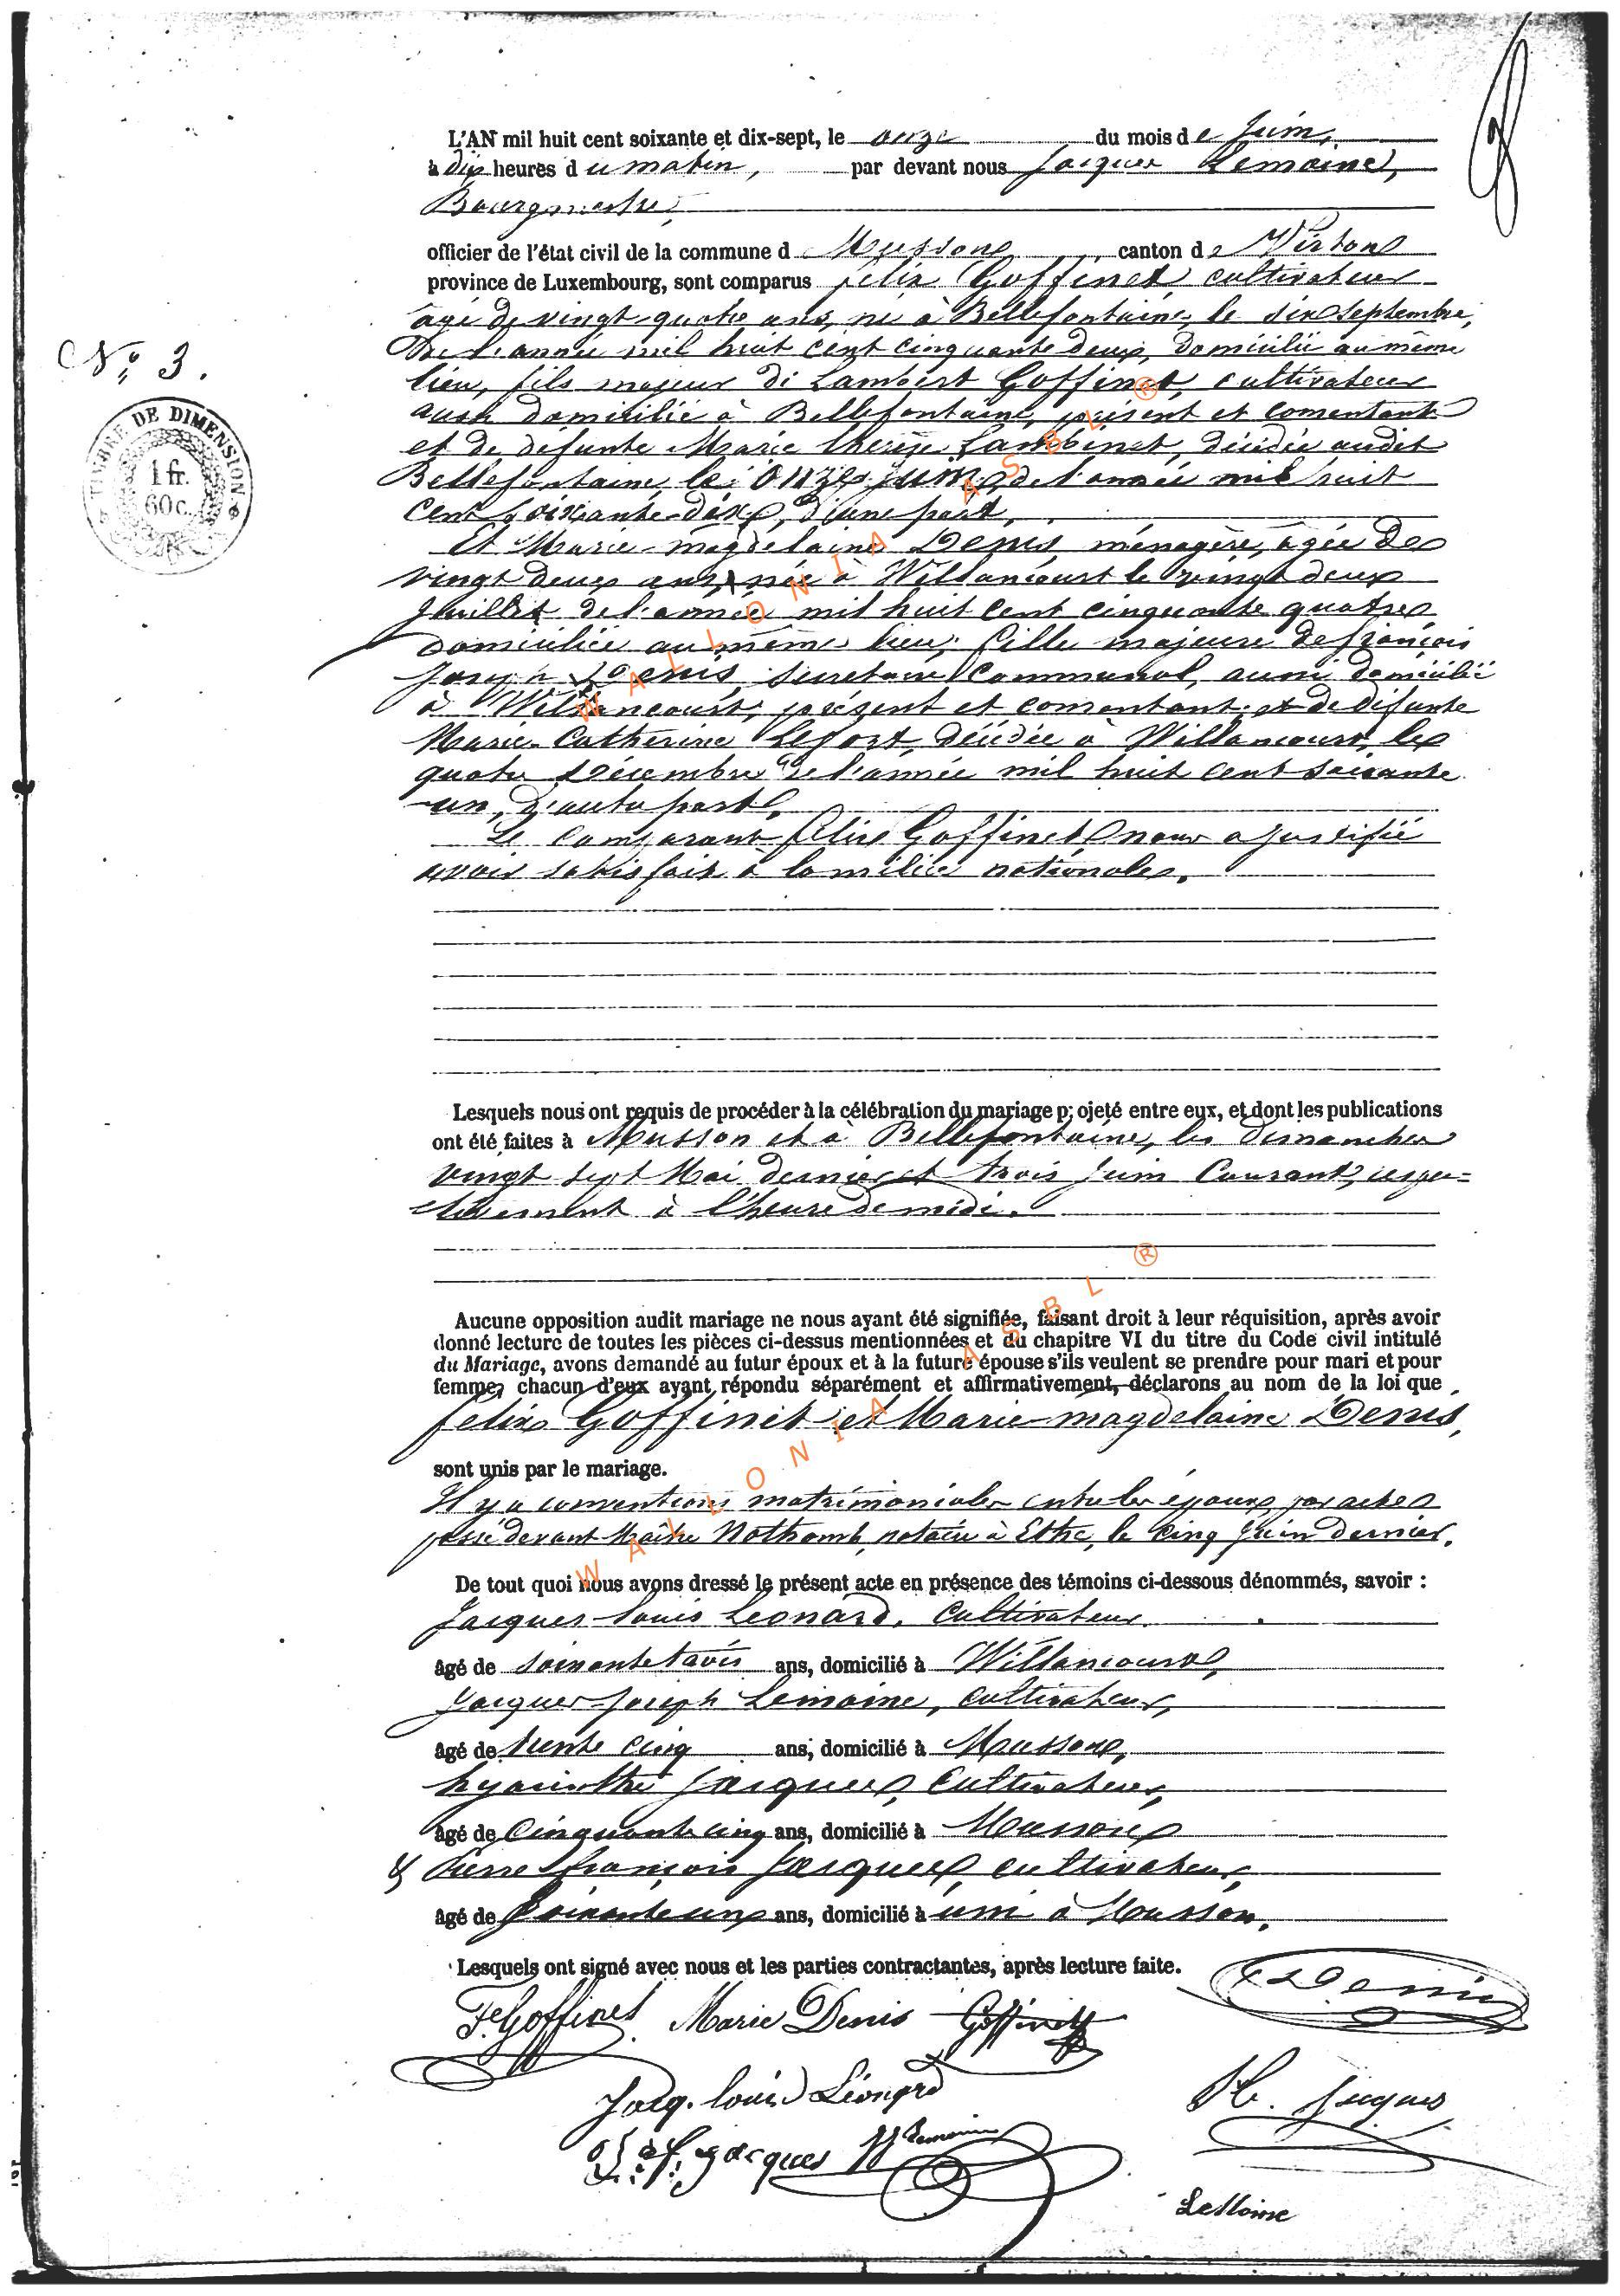 L'AN mil huit cent soixante et dix-sept, le onze du mois de Juin,
à dix heures du matin, par devant nous Jacques Lemoine,
Bourgmestre,
officier de l'état civil de la commune d Musson, canton de Virton
province de Luxembourg, sont comparus félix Goffinet cultivateur
âgé de vingt-quatre ans, né à Bellefontaine, le six septembre,
de l'année mil huit cent cinquante deux, domicilié au même
lieu, fils majeur de Lambert Goffinet, cultivateur
aussi domicilié à Bellefontaine, présent et consentant
et de défunte Marie thérèse Lambinet, décédée audit
Bellefontaine le onze juin, de l'année mil huit
cent soixante-dix, d'une part,
Et Marie-magdelaine Denis, ménagère, agée de
vingt deux ans, née à Willancourt le vingt deux
Juillet de l'année mil huit cent cinquante quatre
domiciliée au même lieu, fille majeure de françois
Joseph Denis, secretaire Communal, aussi domicilié
à Willancourt, présent et consentant, et de défunte
Marie-Catherine Lefort, décédée à Willancourt, le
quatre Décembre de l'année mil huit cent soixante
un, d'autre part,
Le comparant félix Goffinet nous a justifié
avoir satisfait à la milice nationale.
N° 3.
TIMBRE DE DIMENSION
1 fr.
60 c.
Lesquels nous ont requis de procéder à la célébration du mariage projeté entre eux, et dont les publications
ont été faites à Musson et à Bellefontaine, les dimanches
vingt sept Mai dernier et trois Juin Courant, respec=
tivement à l'heure de midi.
Aucune opposition audit mariage ne nous ayant été signifiée, faisant droit à leur réquisition, après avoir
donné lecture de toutes les pièces ci-dessus mentionnées et du chapitre VI du titre du Code civil intitulé
du Mariage, avons demandé au futur époux et à la future épouse s'ils veulent se prendre pour mari et pour
femme, chacun d'eux ayant répondu séparément et affirmativement, déclarons au nom de la loi que
félix Goffinet et Marie-magdelaine Denis,
sont unis par le mariage.
Il y a conventions matrimoniales entre les époux, par acte
passé devant Maître Nothomb, notaire à Ethe, le cinq Juin dernier.
De tout quoi nous avons dressé le présent acte en présence des témoins ci-dessous dénommés, savoir :
Jacques-louis Leonard, Cultivateur
âgé de soixante trois ans, domicilié à Willancourt,
Jacques-Joseph Lemoine, Cultivateur,
âgé de trente cinq ans, domicilié à Musson,
hyacinthe Jacques, Cultivateur,
âgé de Cinquante cinq ans, domicilié à Musson
& Pierre françois Jacques, cultivateur,
âgé de Soixante un ans, domicilié à Musson.
Lesquels ont signé avec nous et les parties contractantes, après lecture faite.
F. Goffinet Marie Denis Goffinet Denis
Jacq. louis Léonard H. Jacques
f. jacques JJ Lemoine
LeMoine
WALLONIA ASBL ®
WALLONIA ASBL ®